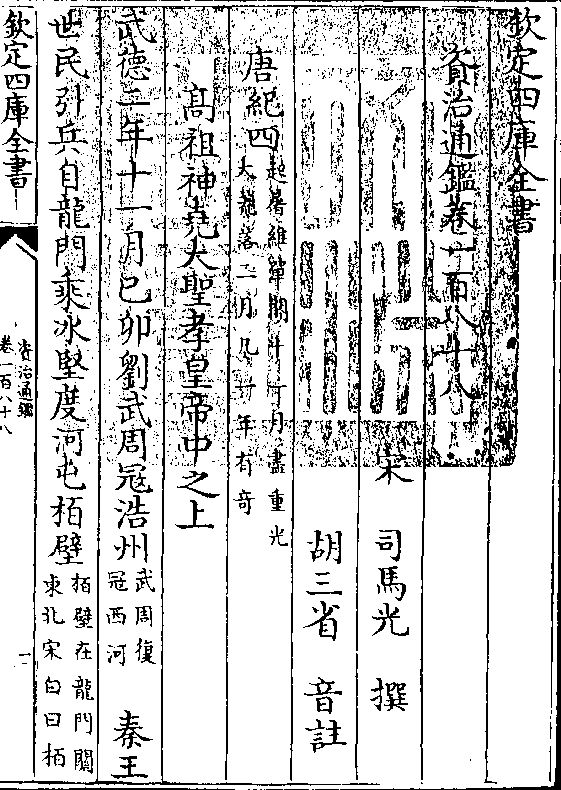 欽定四庫全書
資治通鑑卷一百八十八
宋 司馬光 撰
胡三省 音註
唐紀四 起屠維單閼十一月盡重光大荒落二月凡一年有奇
高祖神堯大聖孝皇帝中之上
武德二年十一月己卯劉武周冦浩州 武周復冦西河 秦王
世民引兵自龍門乘冰堅度河屯栢壁 栢壁在龍門關東北宋白曰栢
欽定四庫全書
資治通鑑
卷一百八十八
一